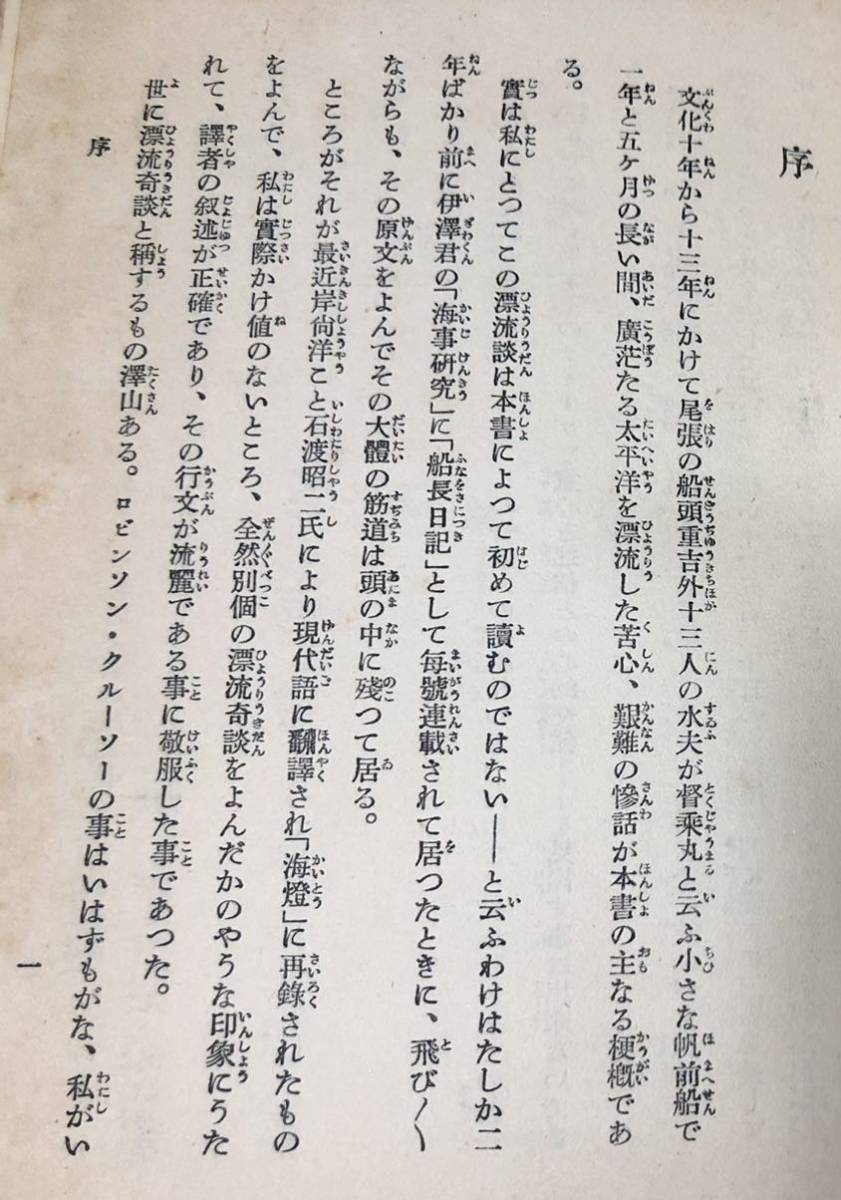 序
文化十年から十三年にかけて尾張の船頭重吉外十三人の水夫が督乘丸と云ふ小さな帆前船で
一年と五ケ月の長い間、廣茫たる太平洋を漂流した苦心、艱難の慘話が本書の主なる梗槪であ
る。
實は私にとつてこの漂流談は本書によつて初めて讀むのではない――と云ふわけはたしか二
年ばかり前に伊澤君の「海事硏究」に「船長日記」として每號連載されて居つたときに、飛び〳〵
ながらも、その原文をよんでその大體の筋道は頭の中に殘つて居る。
ところがそれが最近岸尙洋こと石渡昭二氏により現代語に飜譯され「海燈」に再錄されたもの
をよんで、私は實際かけ値のないところ、全然別個の漂流奇談をよんだかのやうな印象にうた
れて、譯者の叙述が正確であり、その行文が流麗である事に敬服した事であつた。
世に漂流奇談と稱するもの澤山ある。ロビンソン・クルーソーの事はいはずもがな、私がい
序
一